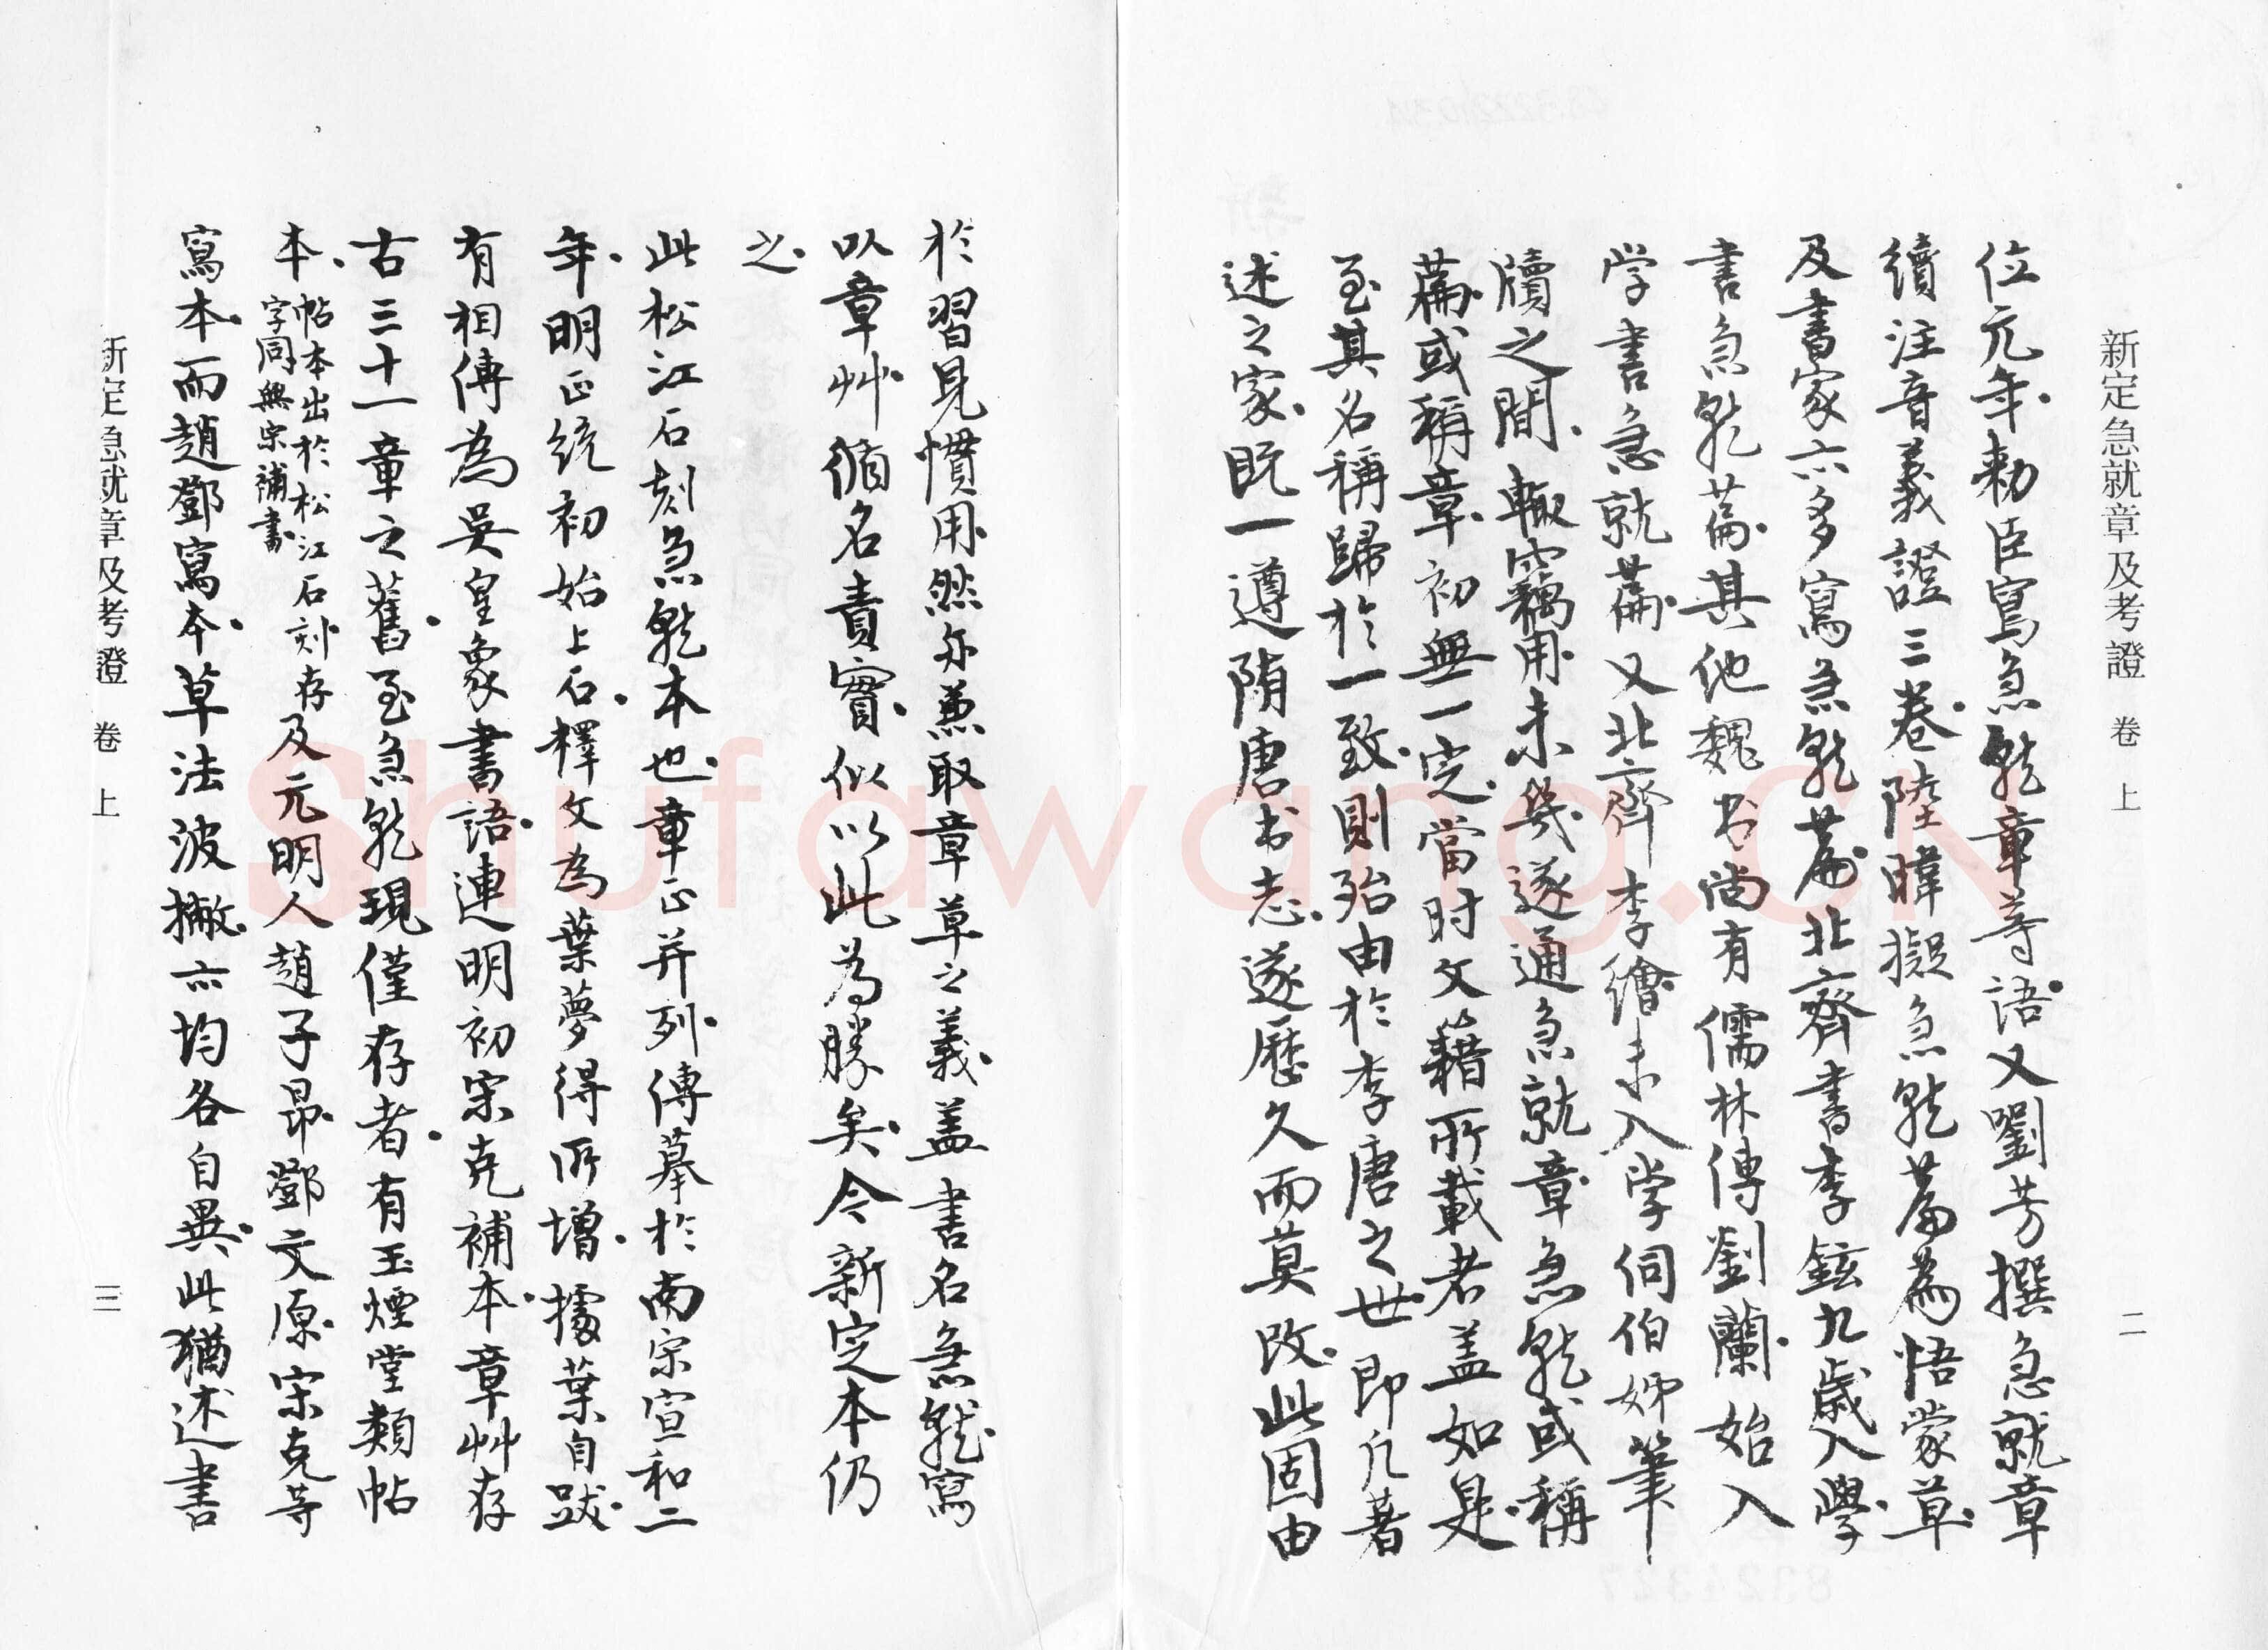 新定急就章及考證 卷上 二
位元年敕臣寫急就章等語又劉芳撰急就章
續注音義證三卷陸暐擬急就篇為悟蒙章
及書家亦多寫急就篇北齊書李鉉九歲入學
書急就篇其他魏书尚有儒林傳劉蘭始入
学書急就篇又北齊李繪未入学伺伯姊筆
牘之間輙竊用未幾遂通急就章急就或稱
篇或稱章初無一定當时文籍所載者盖如是
至其名稱歸於一致則殆由於李唐之世即凡著
述之家既一遵隋唐书志遂歷久而莫改此固由
於習見慣用然亦兼取章草之義盖書名急就寫
以章艸循名責實似以此為勝矣今新定本仍
之
此松江石刻急就本也章正并列傳摹於南宋宣和二
年明正統初始上石釋文為葉夢得所增據葉自跋
有相傳為吳皇象書語連明初宋克補本章艸存
古三十一章之舊至急就現僅存者有玉煙堂類帖
本帖本出於松江石刻存字同無宋補書及元明人趙子昂鄧文原宋克等
寫本而趙鄧寫本草法波撇亦均各自異此猶述書
新定急就章及考證 卷上 三
Shufawang.CN